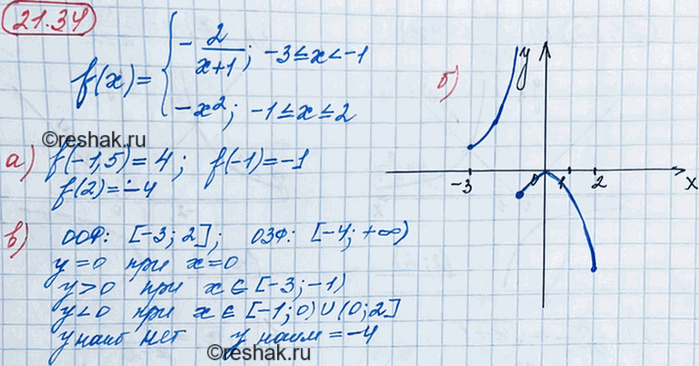 21.34
f(x) = { -2/(x+1); -3≤x<-1
-x²; -1≤x≤2
©reshak.ru
а) f(-1,5)=4; f(-1)=-1
f(2)=-4
б)
y
-3 0 1 2 x
в) ООФ: [-3; 2]; ОЗФ: [-4; +∞)
y=0 при x=0
y>0 при x∈[-3; -1)
y<0 при x∈[-1; 0)∪(0; 2]
y наиб нет y наим = -4
©reshak.ru